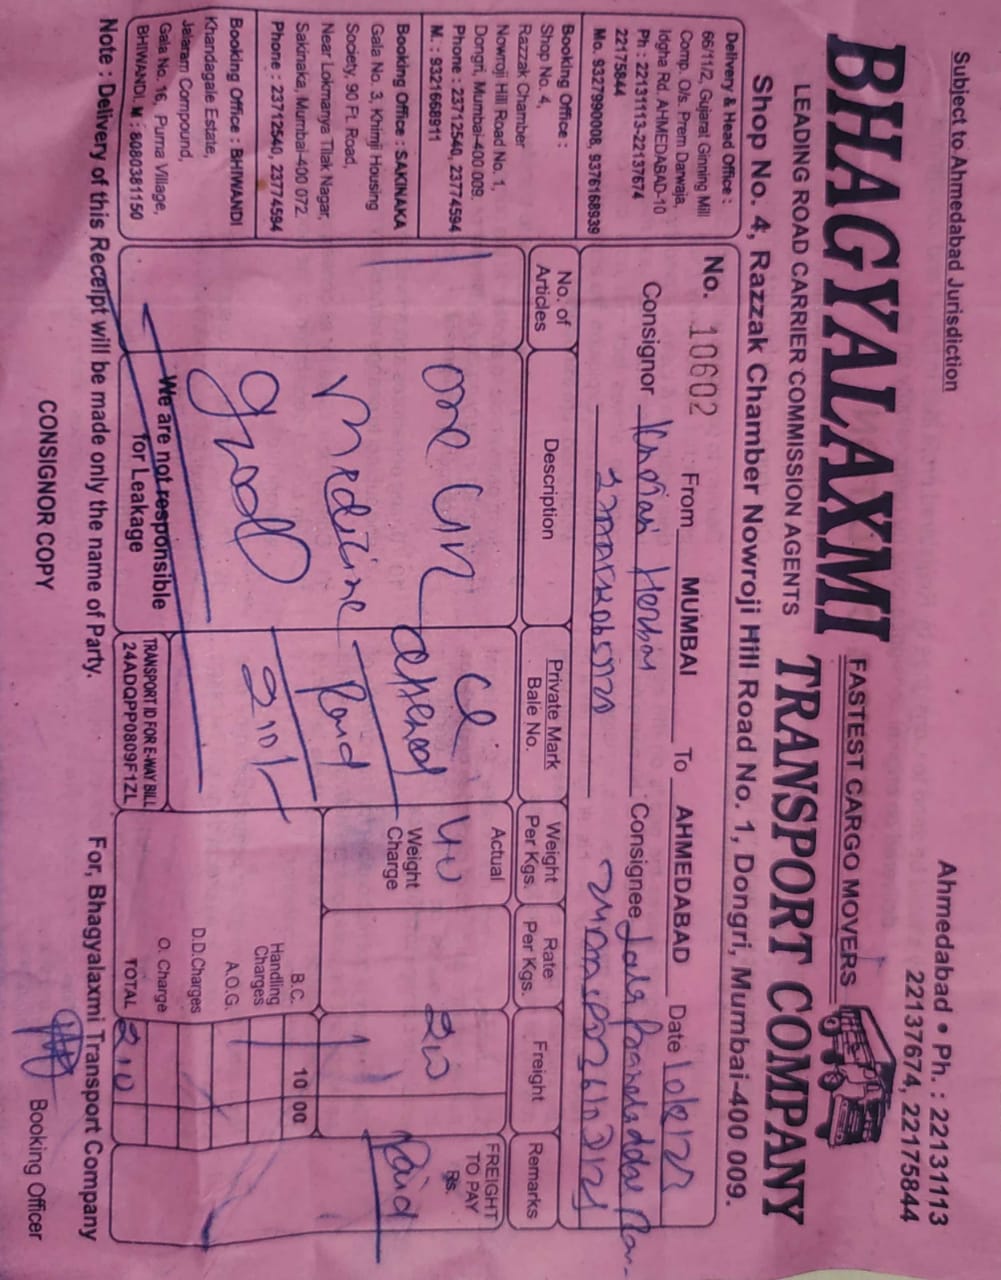 Subject to Ahmedabad Jurisdiction
Ahmedabad • Ph. : 22131113
22137674, 22175844
BHAGYALAXMI TRANSPORT COMPANY
FASTEST CARGO MOVERS
LEADING ROAD CARRIER COMMISSION AGENTS
Shop No. 4, Razzak Chamber Nowroji Hill Road No. 1, Dongri, Mumbai-400 009.
Delivery & Head Office :
66/11/2, Gujarat Ginning Mill
Comp. O/s. Prem Darwaja,
Idgha Rd. AHMEDABAD-10
Ph : 22131113-22137674
22175844
Mo. 9327990008, 9376168939
Booking Office :
Shop No. 4,
Razzak Chamber
Nowroji Hill Road No. 1,
Dongri, Mumbai-400 009.
Phone : 23712540, 23774594
M. : 9321668911
Booking Office : SAKINAKA
Gala No. 3, Khimji Housing
Society, 90 Ft. Road,
Near Lokmanya Tilak Nagar,
Sakinaka, Mumbai-400 072.
Phone : 23712540, 23774594
Booking Office : BHIWANDI
Khandagale Estate,
Jalaram Compound,
Gala No. 16, Purna Village,
BHIWANDI. M : 8080381150
No. 10602 From MUMBAI To AHMEDABAD Date
Consignor Consignee
No. of Articles
Description
Private Mark Bale No.
Weight Per Kgs.
Rate Per Kgs.
Freight
Remarks
one
Medicine
good
Paid
210/-
Actual
40
Weight Charge
200
FREIGHT TO PAY Rs.
Paid
B.C. 10 00
Handling Charges
A.O.G.
D.D.Charges
O. Charge
TOTAL 210
We are not responsible for Leakage
TRANSPORT ID FOR E-WAY BILL
24ADQPP0809F1ZL
Note : Delivery of this Receipt will be made only the name of Party.
For, Bhagyalaxmi Transport Company
CONSIGNOR COPY
Booking Officer